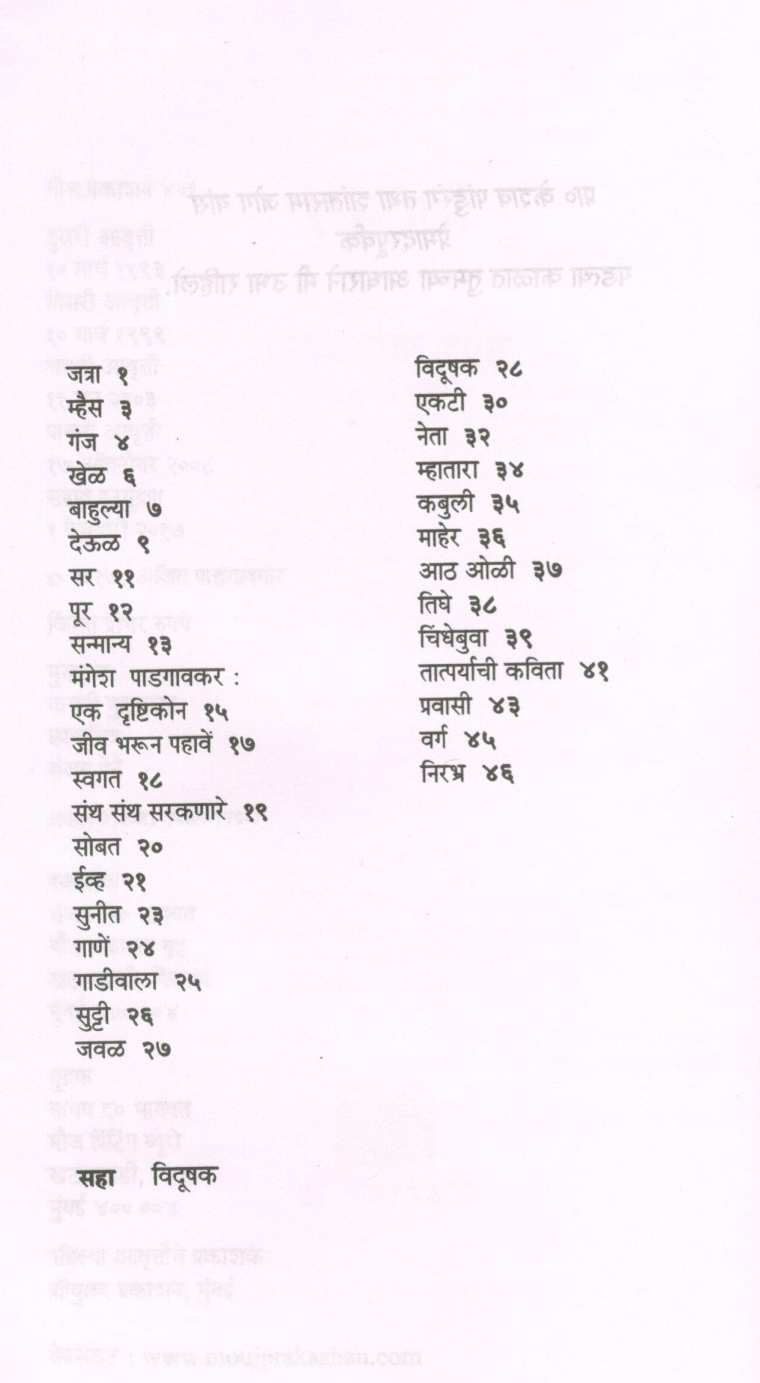 जत्रा १
म्हैस ३
गंज ४
खेळ ६
बाहुल्या ७
देऊळ ९
सर ११
पूर १२
सन्मान्य १३
मंगेश पाडगावकर :
एक दृष्टिकोन १५
जीव भरून पहावें १७
स्वगत १८
संथ संथ सरकणारे १९
सोबत २०
ईव्ह २१
सुनीत २३
गाणें २४
गाडीवाला २५
सुट्टी २६
जवळ २७
विदूषक २८
एकटी ३०
नेता ३२
म्हातारा ३४
कबुली ३५
माहेर ३६
आठ ओळी ३७
तिघे ३८
चिंधेबुवा ३९
तात्पर्याची कविता ४१
प्रवासी ४३
वर्ग ४५
निरभ्र ४६
सहा विदूषक